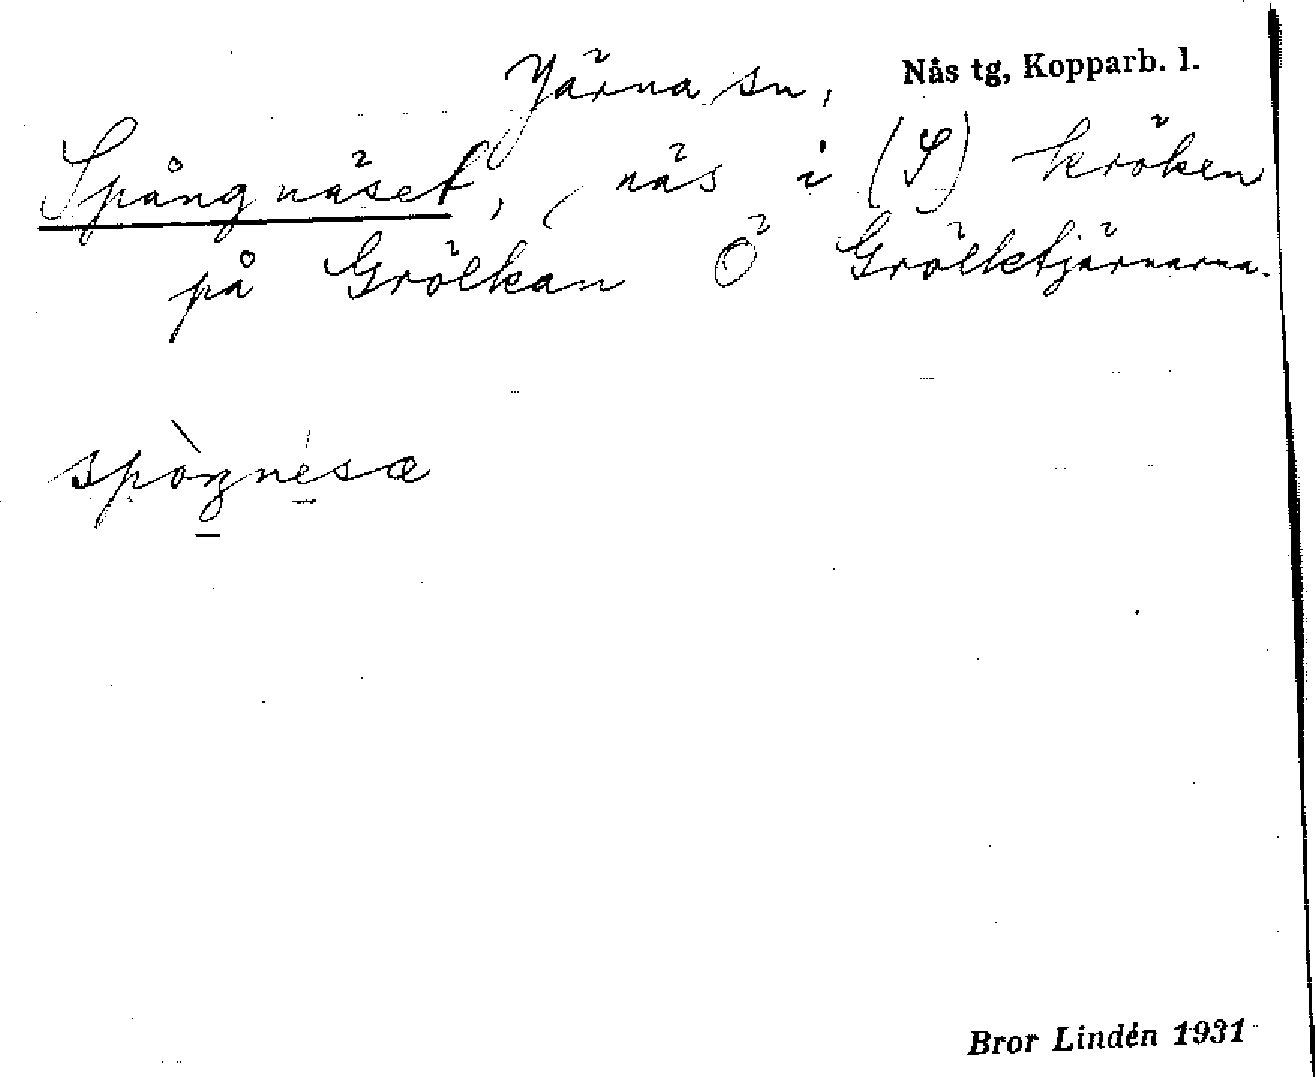 Järna sn, Nås tg, Kopparb. l.
Spångnäset, näs i (S) kröken
på Grölkan Ö Grölktjärnarna.
spòŋnesæ
Bror Lindén 1931